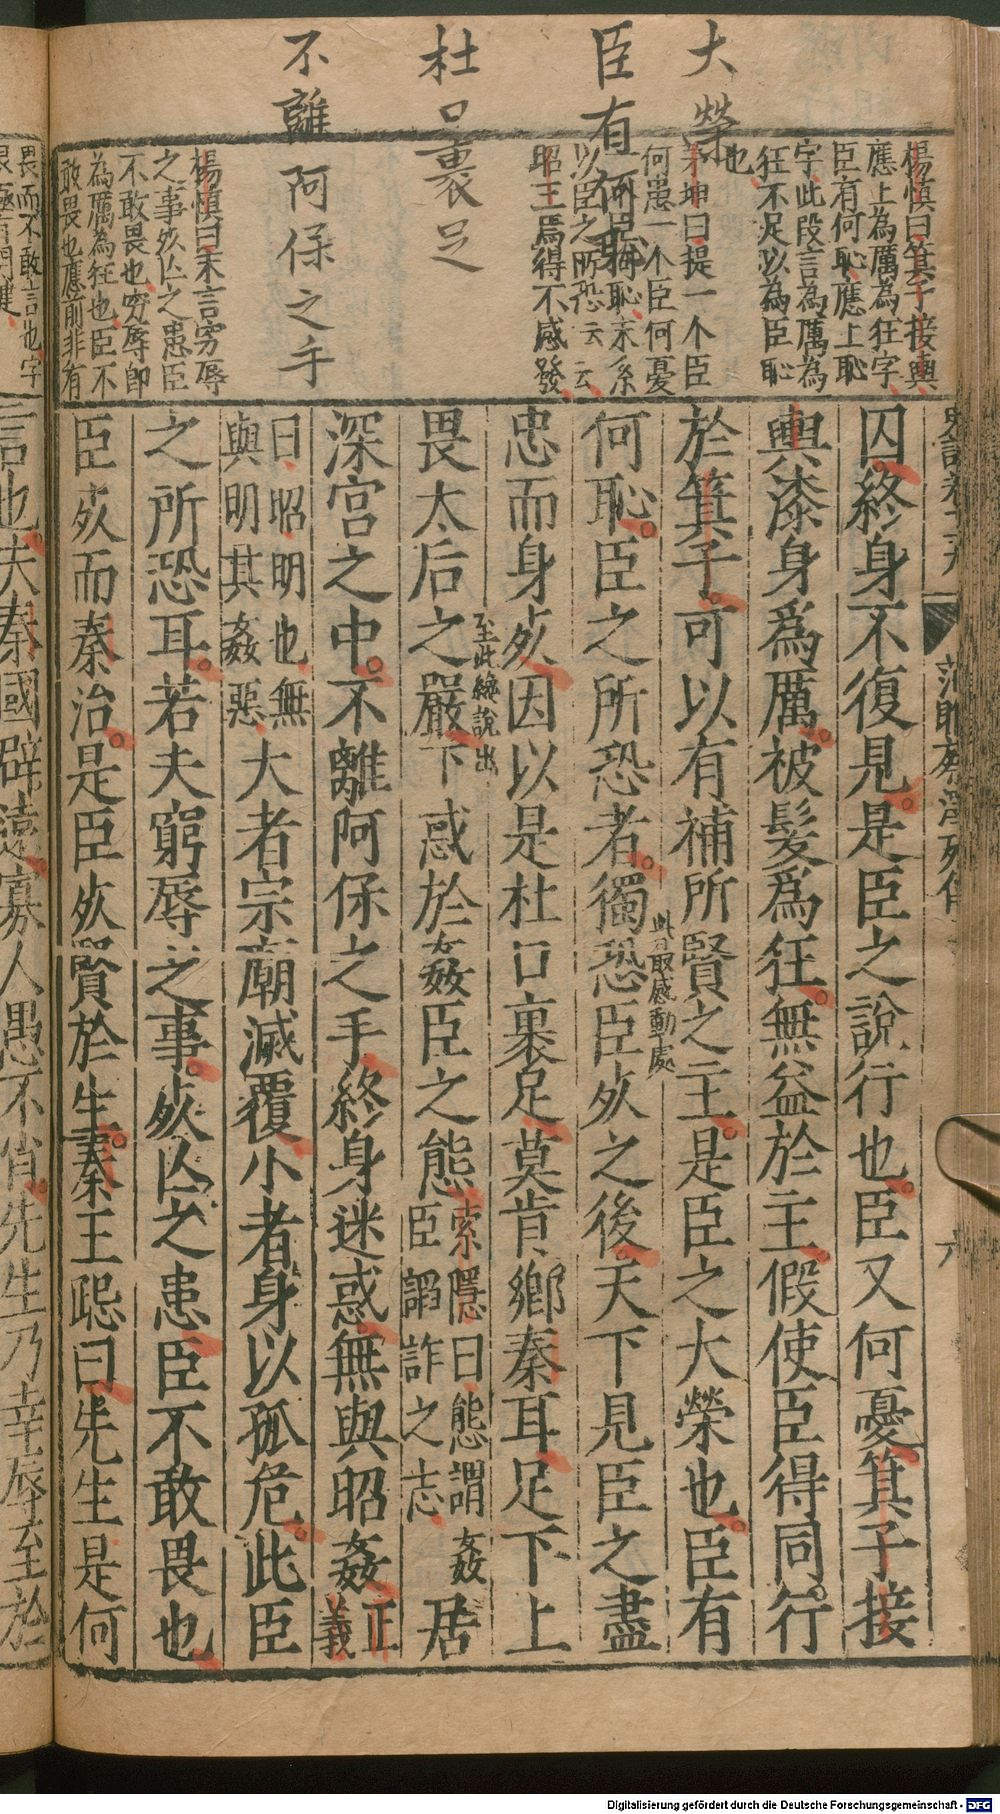 大榮
臣有何恥
杜口裹足
不離阿保之手
楊慎曰箕子接輿
應上為厲為狂字
臣有何恥應上恥
字此段言為厲為
狂不足以為臣恥
也
茅坤曰提一个臣
何愚一个臣何憂
以臣之所恐云云
昭王焉得不感發
楊慎曰末言窮辱
之事死亡之患臣
不敢畏也窮辱即
為厲為狂也臣不
敢畏也應前非有
畏而不敢言也字
史記卷七十九 范雎蔡澤列傳 六
囚終身不復見是臣之說行也臣又何憂箕子接
輿漆身爲厲被髮爲狂無益於主假使臣得同行
於箕子可以有補所賢之主是臣之大榮也臣有
何恥臣之所恐者獨恐臣死之後天下見臣之盡
忠而身死因以是杜口裹足莫肯鄉秦耳足下上
至此纔說出
畏太后之嚴下惑於姦臣之態索隱曰態謂姦臣諂詐之志居
深宮之中不離阿保之手終身迷惑無與昭姦正義
曰昭明也無與明其姦惡大者宗廟滅覆小者身以孤危此臣
之所恐耳若夫窮辱之事死亡之患臣不敢畏也
臣死而秦治是臣死賢於生秦王跽曰先生是何
言也夫秦國辟遠寡人愚不肖先生乃幸辱至於
Digitalisierung gefördert durch die Deutsche Forschungsgemeinschaft - DFG